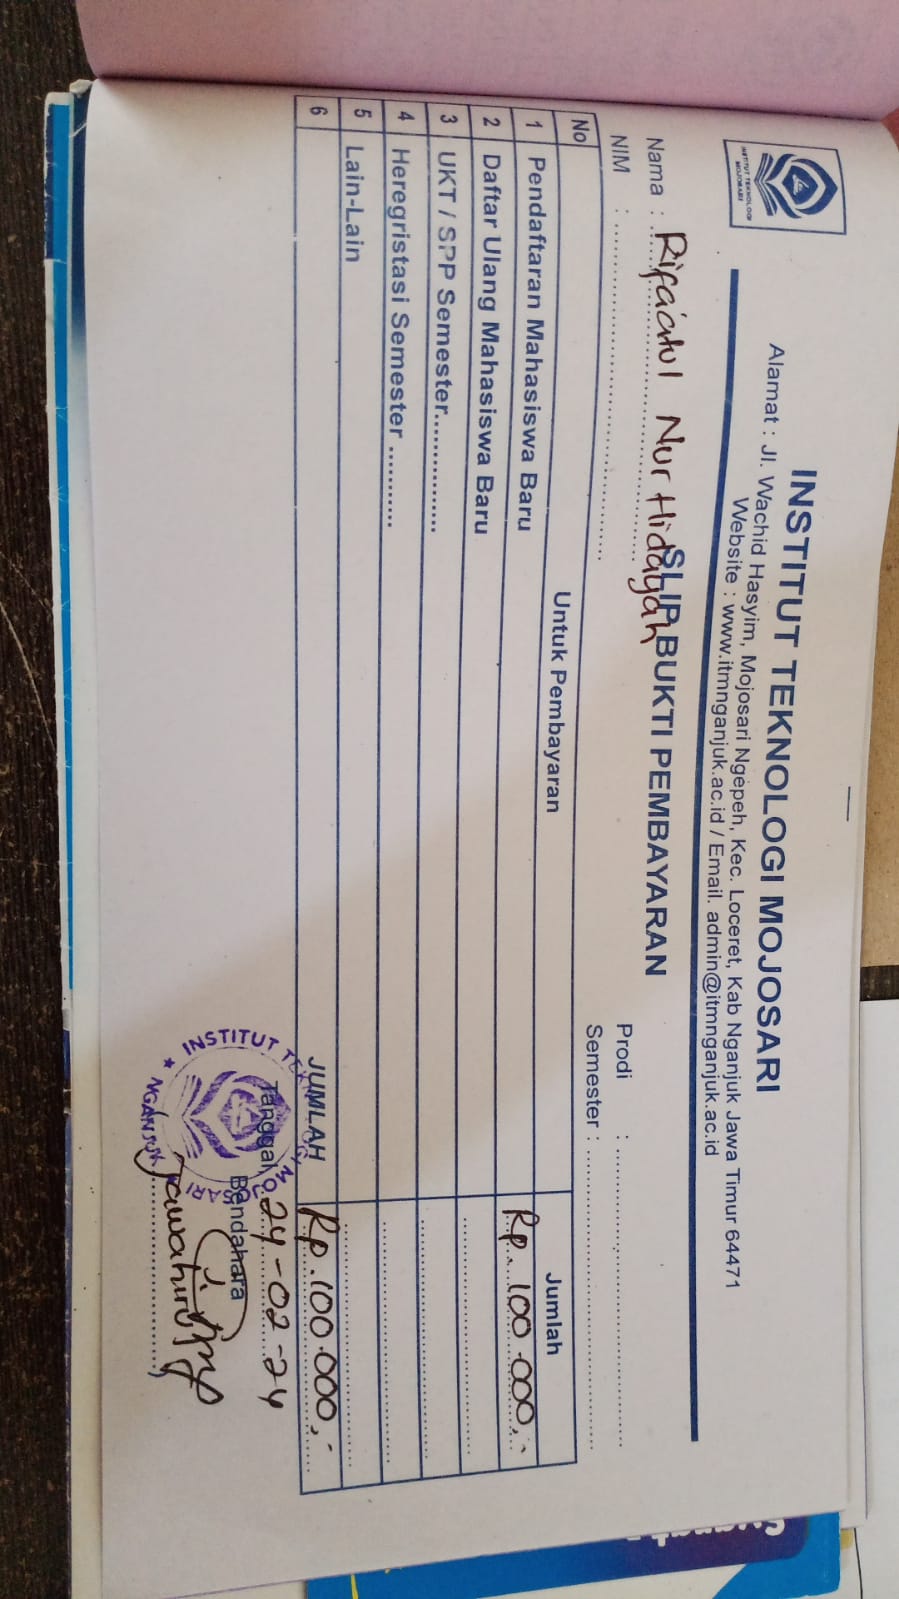 INSTITUT TEKNOLOGI
MOJOSARI
INSTITUT TEKNOLOGI MOJOSARI
Alamat : Jl. Wachid Hasyim, Mojosari Ngepeh, Kec. Loceret, Kab Nganjuk Jawa Timur 64471
Website : www.itmnganjuk.ac.id / Email. admin@itmnganjuk.ac.id
SLIP BUKTI PEMBAYARAN
Nama : Rifa'atul Nur Hidayah
NIM :
Prodi :
Semester :
No Untuk Pembayaran Jumlah
1 Pendaftaran Mahasiswa Baru Rp. 100.000,-
2 Daftar Ulang Mahasiswa Baru
3 UKT / SPP Semester
4 Heregristasi Semester
5 Lain-Lain
6
JUMLAH Rp. 100.000,-
Tanggal 24-02-24
Bendahara
INSTITUT TEKNOLOGI MOJOSARI
NGANJUK